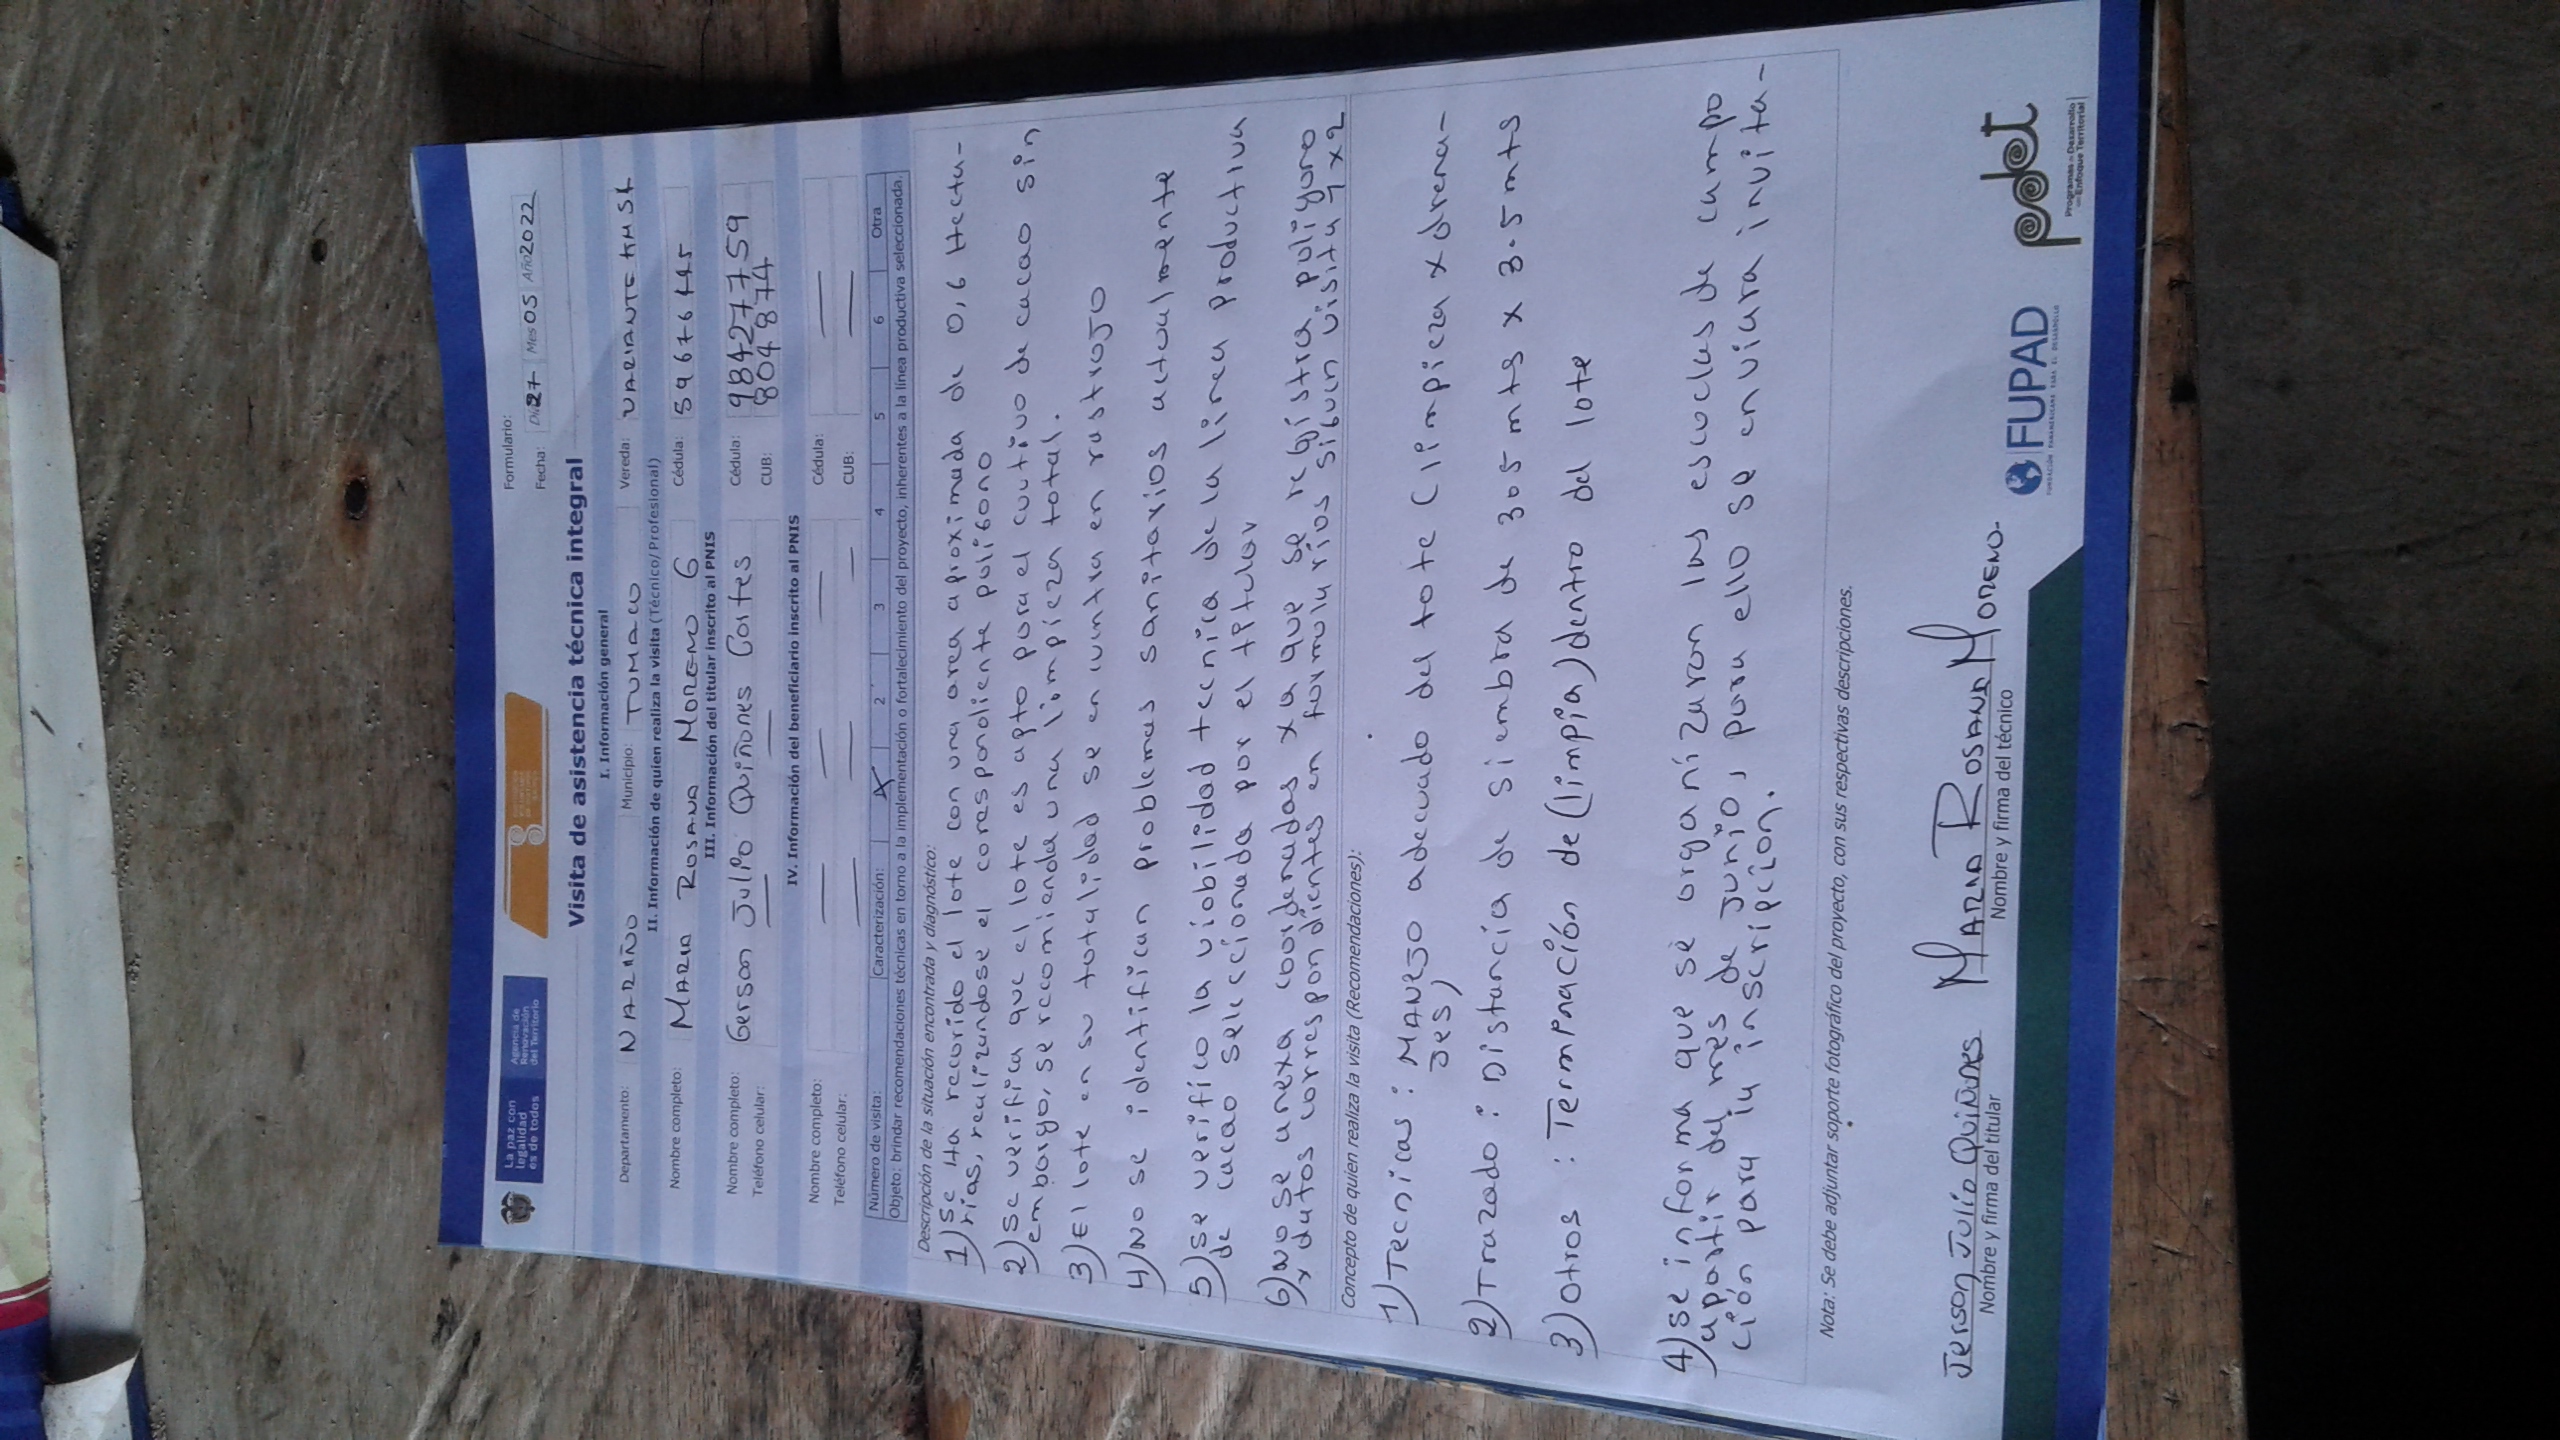 La paz con
legalidad
es de todos
Agencia de
Renovación
del Territorio
Formulario:
Fecha: Día 27 Mes 05 Año 2022
Visita de asistencia técnica integral
I. Información general
Departamento: NARIÑO Municipio: TUMACO Vereda: VARIANTE KM 58
II. Información de quien realiza la visita (Técnico/Profesional)
Nombre completo: MARIA ROSANA MORENO G Cédula: 59676445
III. Información del titular inscrito al PNIS
Nombre completo: Gerson Julio Quiñones Cortes Cédula: 98427759
Teléfono celular: — — CUB: 8048874
IV. Información del beneficiario inscrito al PNIS
Nombre completo: — — — Cédula: —
Teléfono celular: — — — CUB: —
Número de visita: Caracterización: X 2 3 4 5 6 Otra
Objeto: brindar recomendaciones técnicas en torno a la implementación o fortalecimiento del proyecto, inherentes a la línea productiva seleccionada.
Descripción de la situación encontrada y diagnóstico:
1) se Ha recorido el lote con una area aproximada de 0,6 Hecta-
rias, realizandose el corespondiente poligono
2) se verifica que el lote es apto para el cultivo de cacao sin
embargo, se recomienda una limpieza total.
3) El lote en su totalidad se encuentra en rastrojo
4) No se identifican problemas sanitarios actualmente
5) se verifico la viabilidad tecnica de la linea productiva
de cacao seleccionada por el titular
6) No se anexa coordenadas x a que se registra poligono
x datos correspondientes en formularios sigun visita 1 x 2
Concepto de quien realiza la visita (Recomendaciones):
1) Tecnicas: MANEJO adecuado del lote (limpieza x drena-
Jes)
2) Trazado: Distancia de siembra de 3.5 mts x 3.5 mts
3) Otros: Terminación de (limpia) dentro del lote
4) se informa que se organizaran las escuelas de campo
apartir del mes de junio, para ello se enviara invita-
ción para la inscripcion.
Nota: Se debe adjuntar soporte fotográfico del proyecto, con sus respectivas descripciones.
Jerson Julio Quiñones
Nombre y firma del titular
MARIA ROSANA MORENO
Nombre y firma del técnico
FUPAD
FUNDACIÓN PANAMERICANA PARA EL DESARROLLO
pdet
Programas de Desarrollo
con Enfoque Territorial